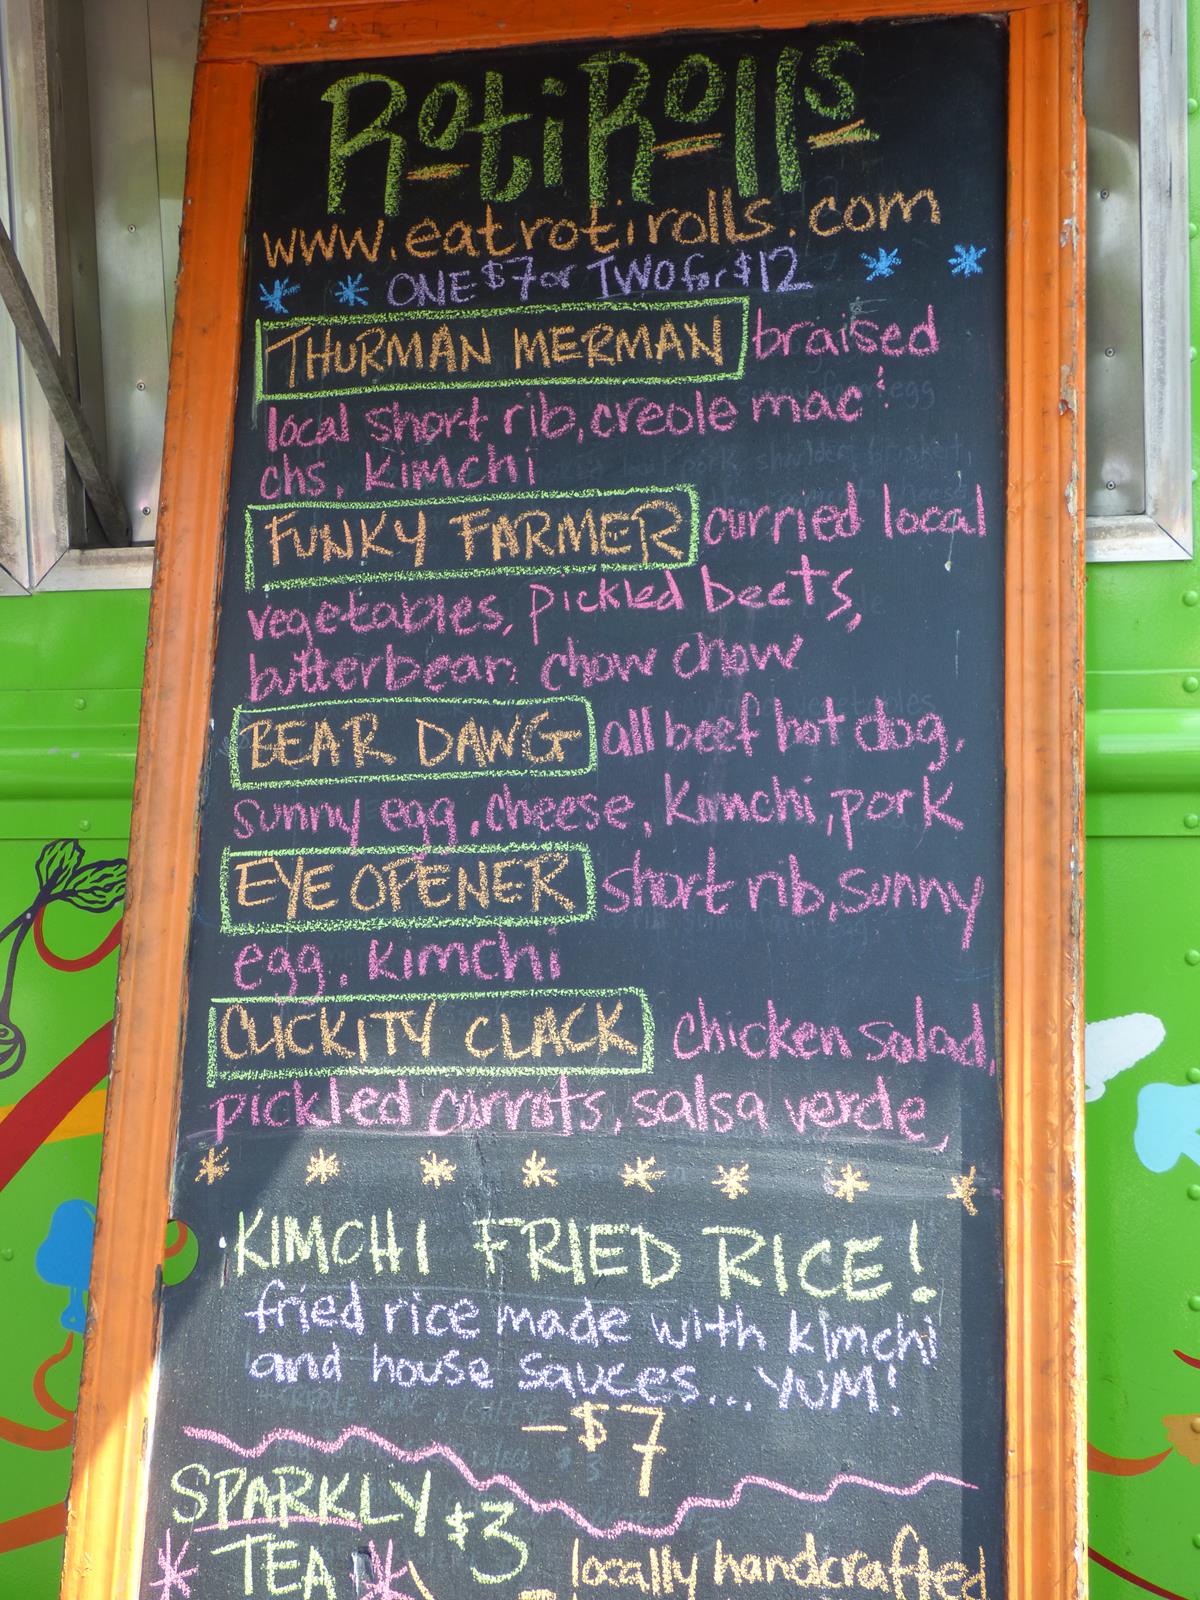 RotiRolls
www.eatrotirolls.com
ONE $7 or TWO for $12
THURMAN MERMAN braised
local short rib, creole mac &
chs, kimchi
FUNKY FARMER curried local
vegetables, pickled beets,
butterbean chow chow
BEAR DAWG all beef hot dog,
sunny egg, cheese, kimchi, pork
EYE OPENER short rib, sunny
egg, kimchi
CLICKITY CLACK chicken salad,
pickled carrots, salsa verde,
KIMCHI FRIED RICE!
fried rice made with kimchi
and house sauces... YUM!
-$7
SPARKLY $3
TEA locally handcrafted